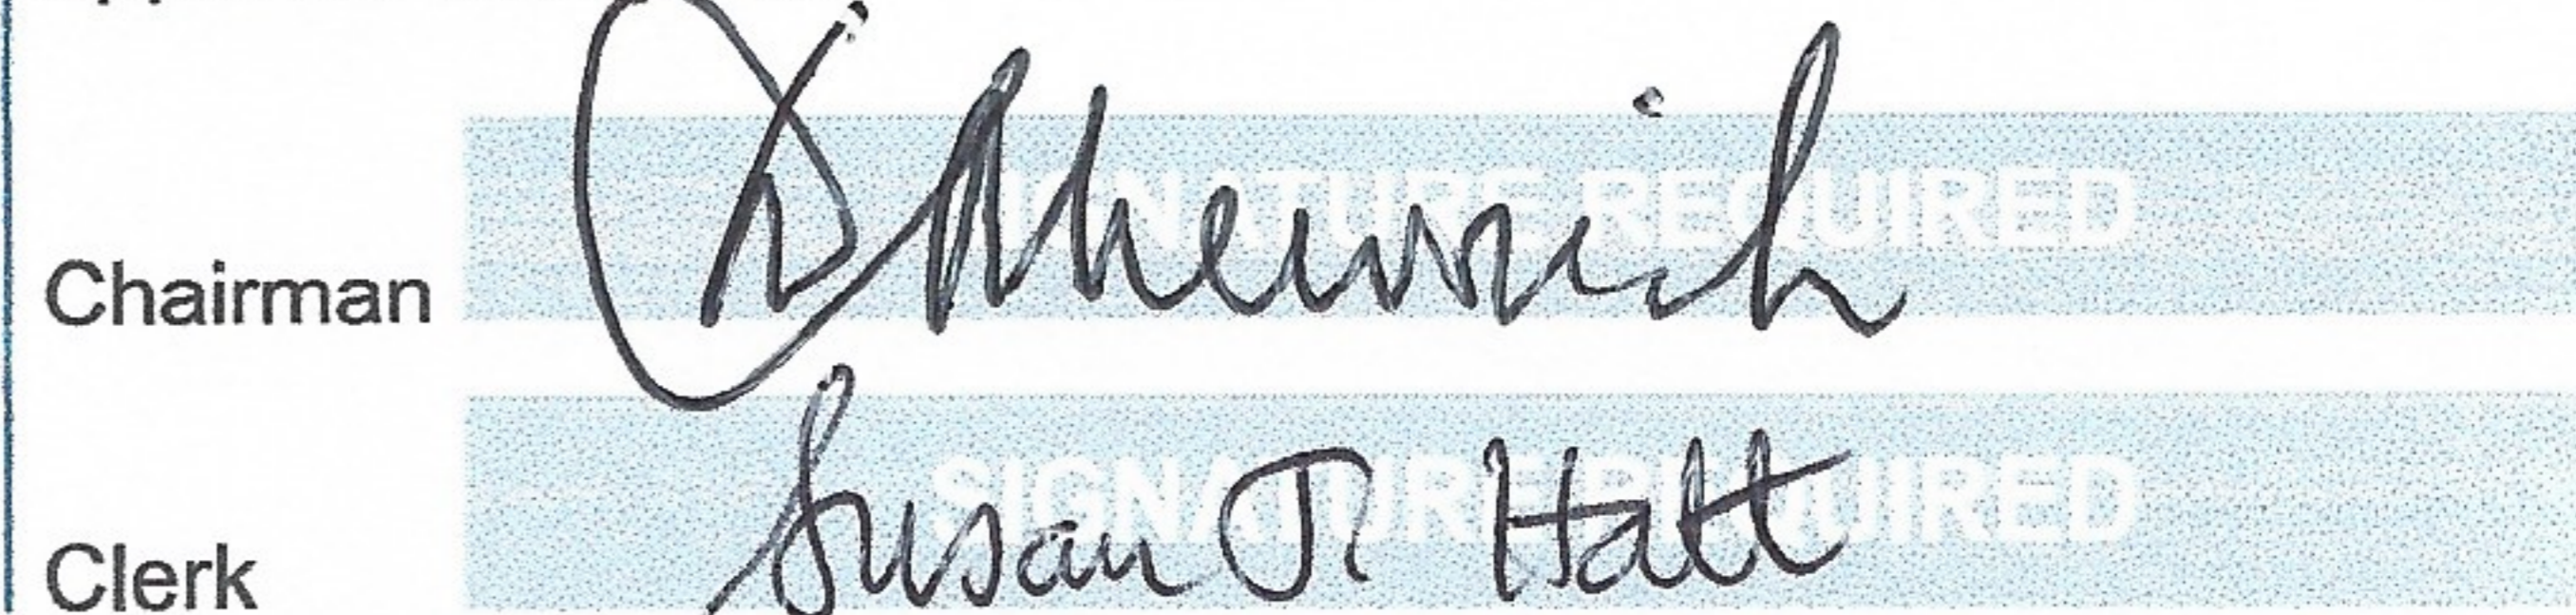 Chairman SIGNATURE REQUIRED
Clerk SIGNATURE REQUIRED Susan J. Hatt